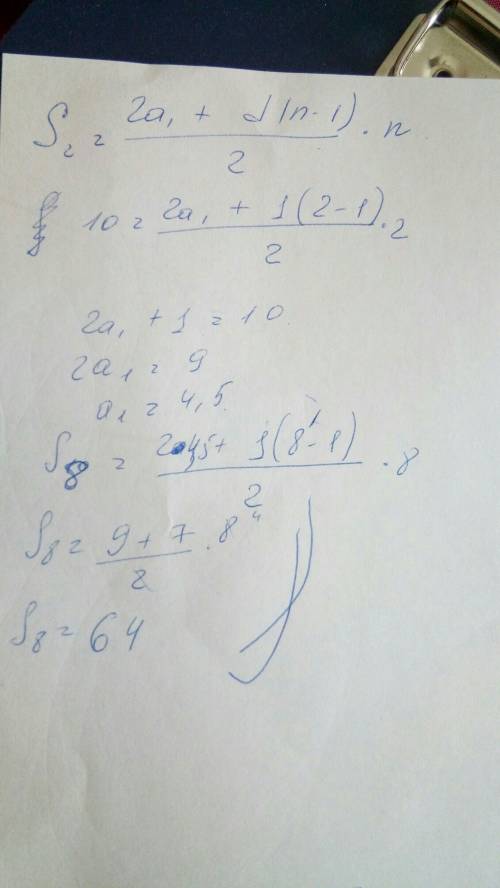 S₂ = (2a₁ + d(n-1))/2 · n
10 = (2a₁ + 1(2-1))/2 · 2
2a₁ + 1 = 10
2a₁ = 9
a₁ = 4,5
S₈ = (2·4,5 + 1(8-1))/2 · 8
S₈ = (9 + 7)/2 · 8 4
S₈ = 64